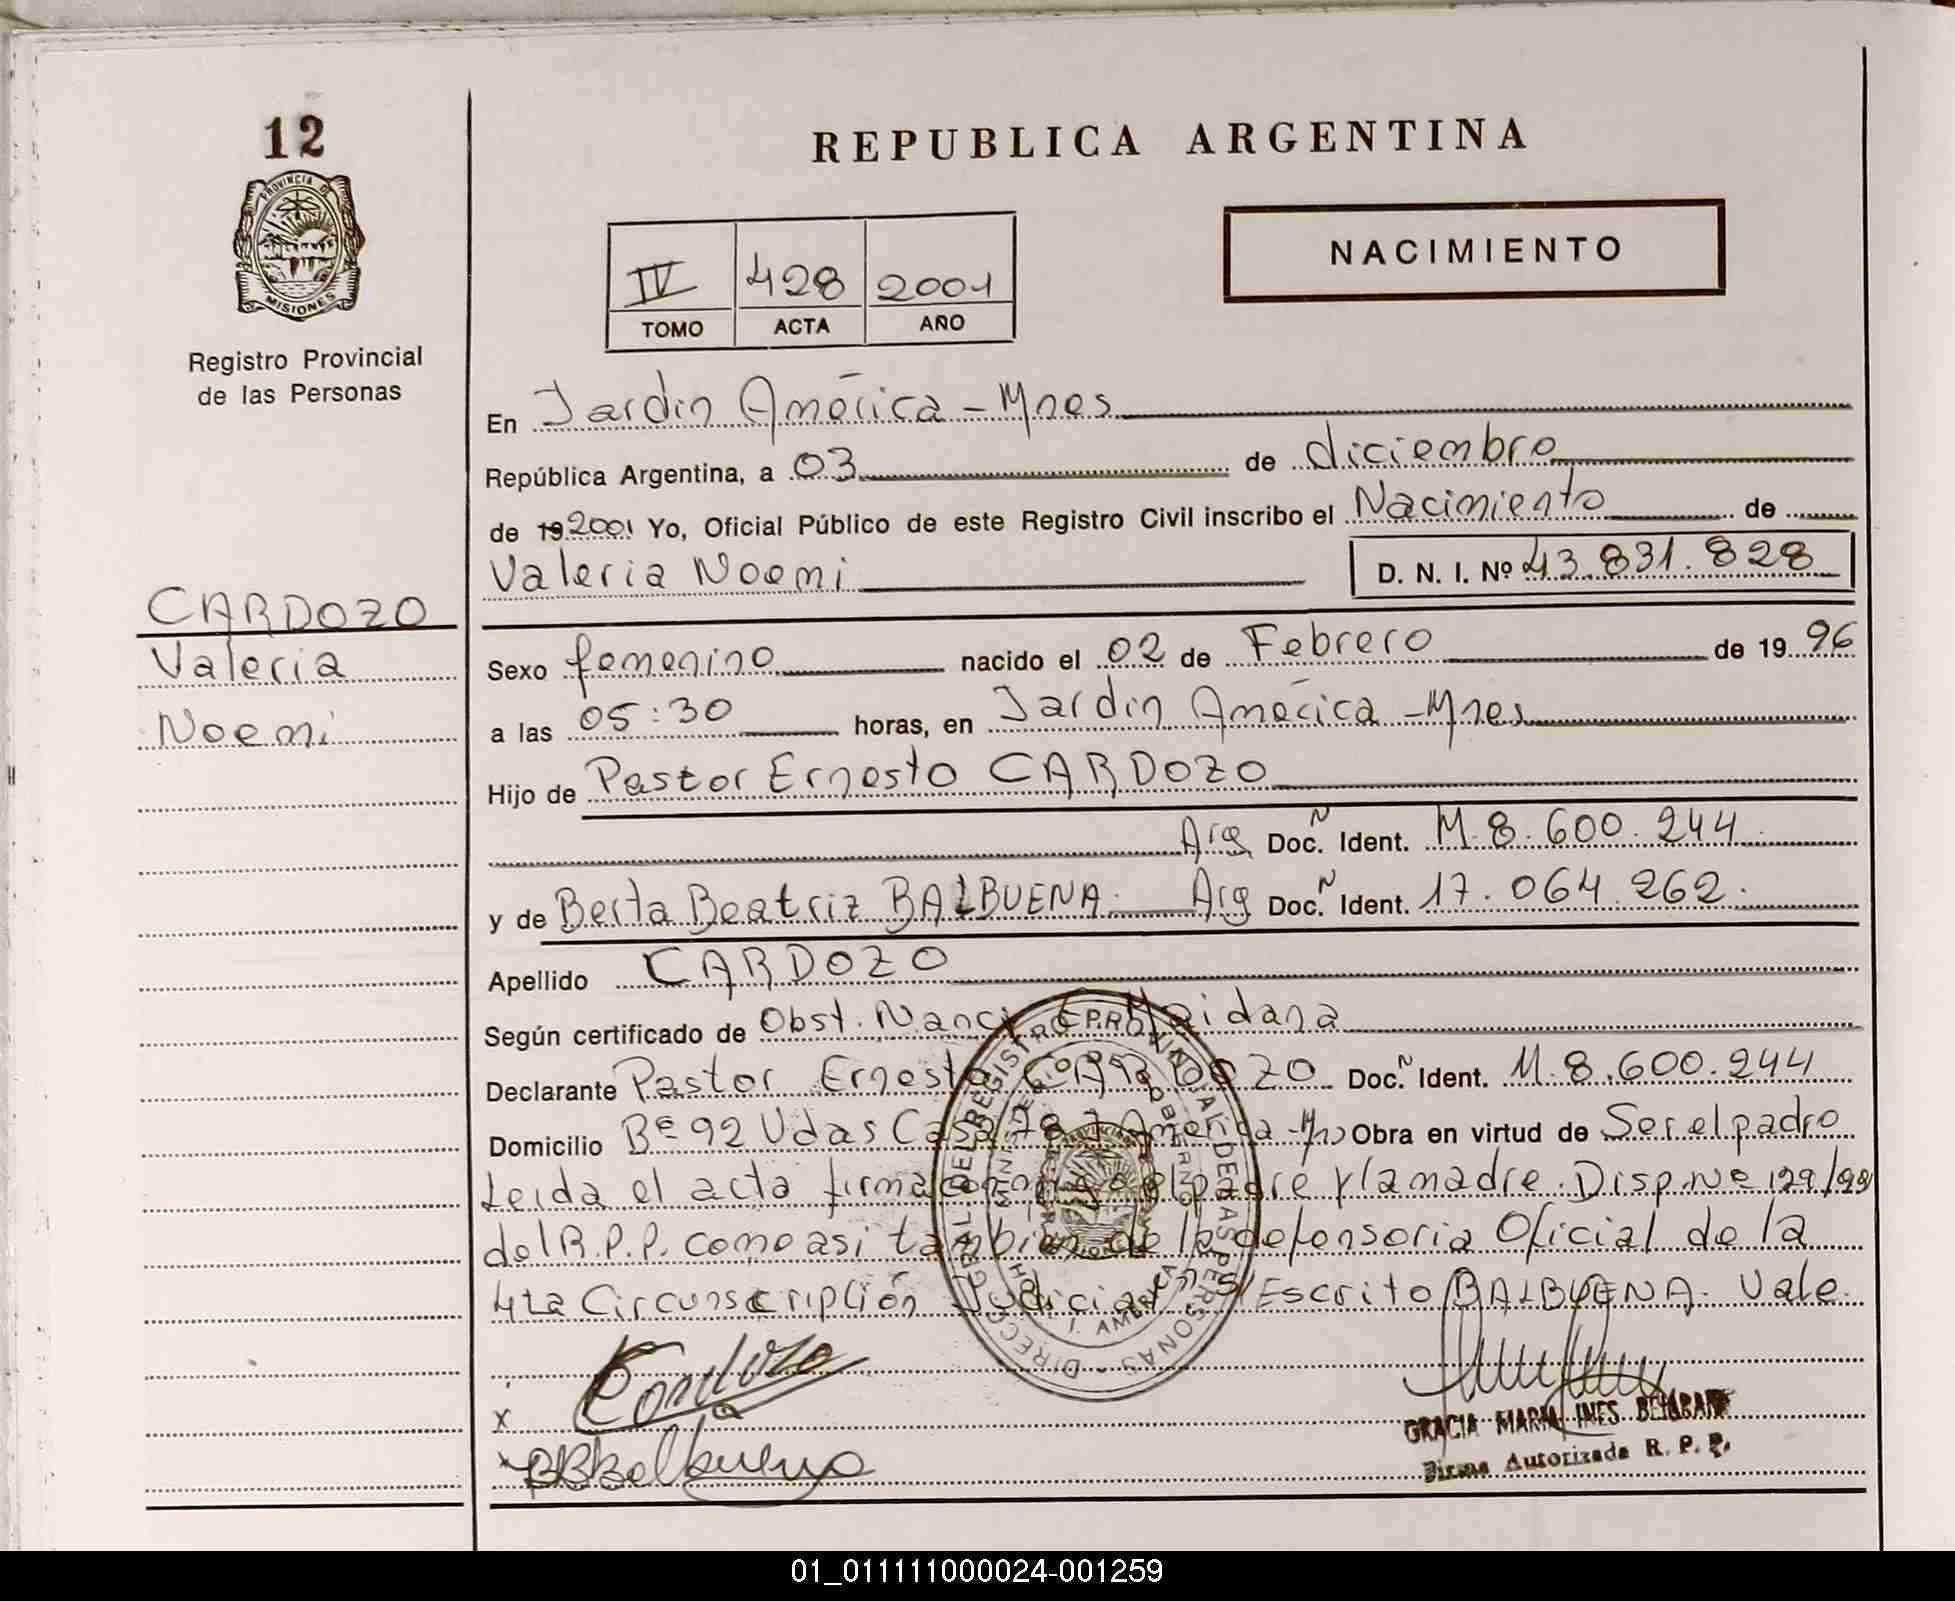 12
PROVINCIA DE
MISIONES
Registro Provincial
de las Personas
CARDOZO
Valeria
Noemi
REPUBLICA ARGENTINA
IV 428 2001
TOMO ACTA AÑO
NACIMIENTO
En Jardin América - Mnes
República Argentina, a 03 de diciembre
de 19 2001 Yo, Oficial Público de este Registro Civil inscribo el Nacimiento de
Valeria Noemi D. N. I. Nº 43.831.828
Sexo femenino nacido el 02 de Febrero de 19 96
a las 05:30 horas, en Jardin América - Mnes
Hijo de Pastor Ernesto CARDOZO
Arg Doc. N Ident. M. 8.600.244
y de Berta Beatriz BALBUENA. Arg Doc. N Ident. 17.064.262.
Apellido CARDOZO
Según certificado de Obst. Nanci Maidana
Declarante Pastor Ernesto CARDOZO Doc. N Ident. M. 8.600.244
Domicilio Bº 92 Vdas Casa América - Mns Obra en virtud de Ser el padre
Leida el acta firma el padre y la madre. Disp. Nº 129/99
del R.P.P. como asi tambien de la defensoria Oficial de la
4ta Circunscripción Judicial S/Escrito BALBUENA. Vale.
DIRECC. GRAL. DEL REGISTRO PROVINCIAL DE LAS PERSONAS
J. AMERICA
x Cardozo
x BBBalbuena
GRACIA MARIA INES
Firma Autorizada R. P. P.
01_011111000024-001259